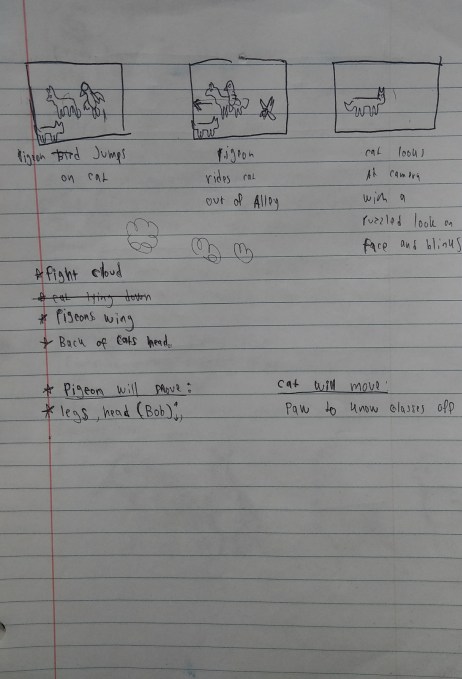 Pigeon bird Jumps
on cat
Pigeon
rides cat
out of Alley
cat looks
At camera
with a
puzzled look on
face and blinks
* Fight cloud
* cat lying down
* Pigeons wing
* Back of cats head.
* Pigeon will move:
* legs, head (Bob)
cat will move:
Paw to know glasses off